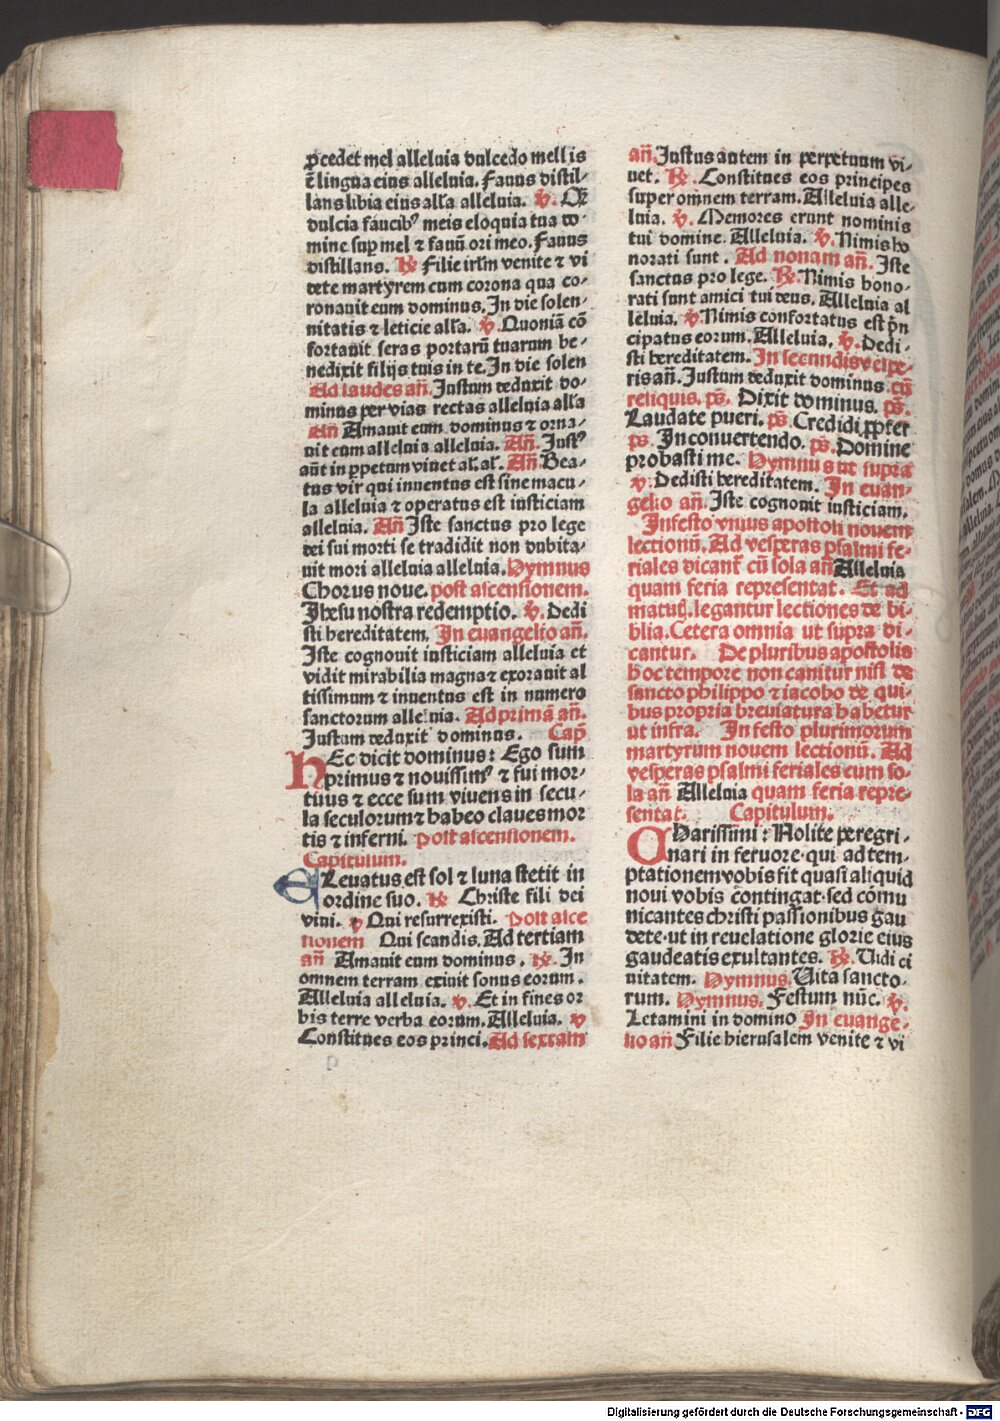 ꝓcedet mel alleluia dulcedo mellis
ē lingua eius alleluia. Fauus distil⸗
lans libia eius alľa alleluia. ℣. Qȝ
dulcia faucibꝰ meis eloquia tua do⸗
mine suꝑ mel ⁊ fauū ori meo. Fauus
distillans. ℟ Filie irľm venite ⁊ vi
dete martyrem cum corona qua co⸗
ronauit eum dominus. In die solen⸗
nitatis ⁊ leticie alľa. ℣. Quoniā cō
fortauit seras portarū tuarum be⸗
nedixit filijs tuis in te. In die solen
Ad laudes añ. Justum deduxit do⸗
minus per vias rectas alleluia alľa
Añ Amauit eum dominus ⁊ orna⸗
uit eum alleluia alleluia. Añ. Justꝰ
aūt in ꝑpetuum viuet aľ. aľ. Añ. Bea⸗
tus vir qui inuentus est sine macu⸗
la alleluia ⁊ operatus est iusticiam
alleluia. Añ Iste sanctus pro lege
dei sui morti se tradidit non dubita⸗
uit mori alleluia alleluia. Hymnus
Chorus noue. post ascensionem.
Jhesu nostra redemptio. ℣. Dedi
sti hereditatem. In euangelio añ.
Iste cognouit iusticiam alleluia et
vidit mirabilia magna ⁊ exorauit al
tissimum ⁊ inuentus est in numero
sanctorum alleluia. Ad primā añ.
Justum deduxit dominus. Capľ
HEc dicit dominus: Ego sum
primus ⁊ nouissimꝰ ⁊ fui mor⸗
tuus ⁊ ecce sum viuens in secu⸗
la seculorum ⁊ habeo claues mor
tis ⁊ inferni. Post ascensionem.
Capitulum.
ELeuatus est sol ⁊ luna stetit in
ordine suo. ℟ Christe fili dei
viui. ℣ Qui resurrexisti. Post asce
nsionem Qui scandis. Ad tertiam
añ Amauit eum dominus. ℟. In
omnem terram exiuit sonus eorum.
Alleluia alleluia. ℣. Et in fines or
bis terre verba eorum. Alleluia. ℣
Constitues eos princi. Ad sextam
añ. Justus autem in perpetuum vi⸗
uet. ℟. Constitues eos principes
super omnem terram. Alleluia alle⸗
luia. ℣. Memores erunt nominis
tui domine. Alleluia. ℣. Nimis ho
norati sunt. Ad nonam añ. Iste
sanctus pro lege. ℟. Nimis hono⸗
rati sunt amici tui deus. Alleluia al
leluia. ℣ Nimis confortatus est pͥn
cipatus eorum. Alleluia. ℣. Dedi⸗
sti hereditatem. In secundis vespe⸗
ris añ. Justum deduxit dominus. cū
reliquis. ps̄. Dixit dominus. ps̄.
Laudate pueri. ps̄. Credidi ꝓpter
ps̄. In conuertendo. ps̄. Domine
probasti me. Hymnus ut supra
℣. Dedisti hereditatem. In euan⸗
gelio añ. Iste cognouit iusticiam.
In festo vnius apostoli nouem
lectionū. Ad vesperas psalmi fe⸗
riales dicant̄ cū sola añ Alleluia
quam feria representat. Et ad
matuť. legantur lectiones de bi⸗
blia. Cetera omnia ut supra di⸗
cantur. De pluribus apostolis
hoc tempore non canitur nisi de
sancto philippo ⁊ iacobo de qui⸗
bus propria breuiatura habetur
ut infra. In festo plurimorum
martyrum nouem lectionū. Ad
vesperas psalmi feriales cum so⸗
la añ Alleluia quam feria repre⸗
sentat. Capitulum.
CHarissimi: Nolite peregri⸗
nari in feruore qui ad tem⸗
ptationem vobis fit quasi aliquid
noui vobis contingat. sed cōmu
nicantes christi passionibus gau
dete. ut in reuelatione glorie eius
gaudeatis exultantes. ℟. Uidi ci
uitatem. Hymnus. Uita sancto⸗
rum. Hymnus. Festum nūc. ℣.
Letamini in domino In euange⸗
lio añ Filie hierusalem venite ⁊ vi
Digitalisierung gefördert durch die Deutsche Forschungsgemeinschaft - DFG